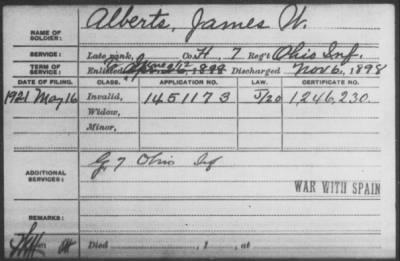 NAME OF SOLDIER: Alberts, James W.
SERVICE: Late rank, Co. H, 7 Reg't Ohio Inf.
TERM OF SERVICE: Enlisted 1898 Discharged Nov 6, 1898
DATE OF FILING. CLASS. APPLICATION NO. LAW. CERTIFICATE NO.
1921 May 16 Invalid, 1451173 J/20 1,246,230.
Widow,
Minor,
ADDITIONAL SERVICES: G, 7 Ohio Inf
WAR WITH SPAIN
REMARKS:
Died , 1 , at